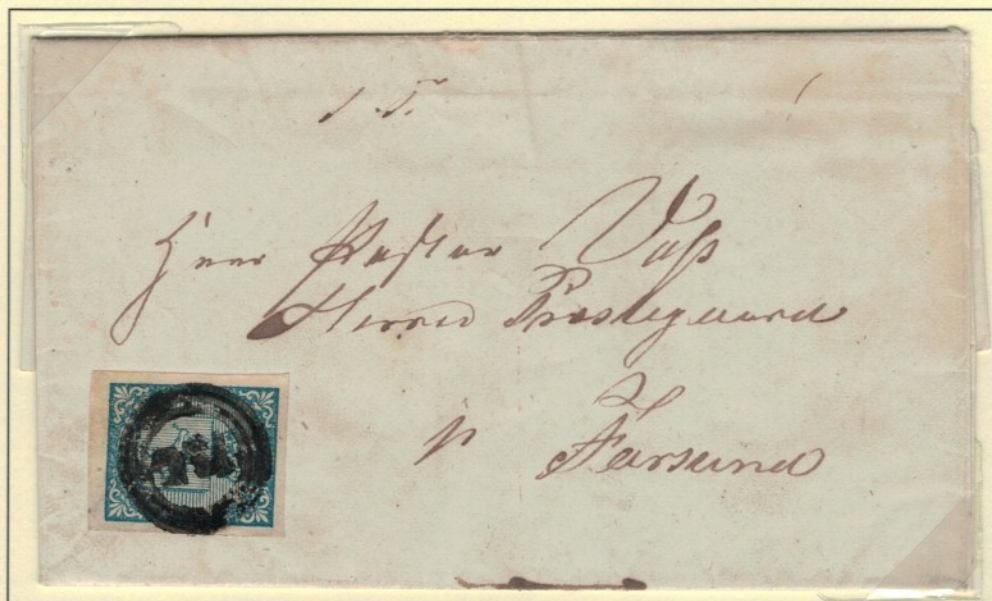 Herr Pastor Voss
Herred Præstegaard
p Farsund